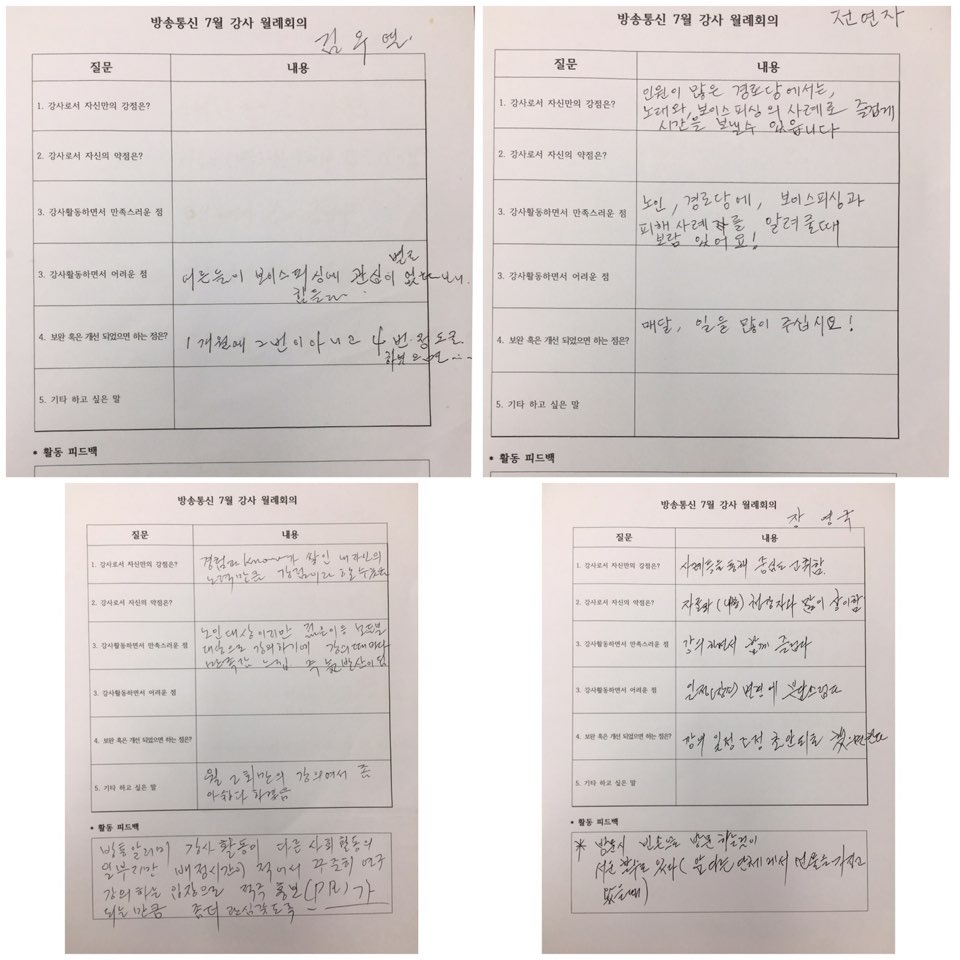 방송통신 7월 강사 월례회의
김우
질문 내용
1. 강사로서 자신만의 강점은?
2. 강사로서 자신의 약점은?
3. 강사활동하면서 만족스러운 점
3. 강사활동하면서 어려운 점
별로
보이스피싱에 관심이
4. 보완 혹은 개선 되었으면 하는 점은?
1개월에 2번이 아니고 4번 정도로
하였으면...
5. 기타 하고 싶은 말
* 활동 피드백
방송통신 7월 강사 월례회의
전연자
질문 내용
1. 강사로서 자신만의 강점은?
인원이 많은 경로당에서는,
노래와, 보이스피싱의 사례로 즐겁게
시간을 보낼수 있읍니다
2. 강사로서 자신의 약점은?
3. 강사활동하면서 만족스러운 점
노인, 경로당에, 보이스피싱과
피해사례를 알려줄때
보람 있어요!
3. 강사활동하면서 어려운 점
4. 보완 혹은 개선 되었으면 하는 점은?
매달, 일을 많이 주십시요!
5. 기타 하고 싶은 말
* 활동 피드백
방송통신 7월 강사 월례회의
질문 내용
1. 강사로서 자신만의 강점은?
경험과 know가 쌓인 내 자신의
노력만큼 강점이라
2. 강사로서 자신의 약점은?
3. 강사활동하면서 만족스러운 점
노인대상이지만 젊은이등
대상으로 강의하기에 강의때마다
만족감 느낌
3. 강사활동하면서 어려운 점
4. 보완 혹은 개선 되었으면 하는 점은?
5. 기타 하고 싶은 말
월 2회만의 강의여서 좀
* 활동 피드백
강사활동이 다른 사회활동의
배정시간이 적어서 꾸준히 연구
강의하는 입장으로 적극 홍보(PR)가
되는 만큼 좀더
방송통신 7월 강사 월례회의
장영국
질문 내용
1. 강사로서 자신만의 강점은?
사례등을 통해
2. 강사로서 자신의 약점은?
많이 상이함
3. 강사활동하면서 만족스러운 점
강의하면서 함께 즐겁다
3. 강사활동하면서 어려운 점
변경에 부담스럽다
4. 보완 혹은 개선 되었으면 하는 점은?
강의 일정 조정
5. 기타 하고 싶은 말
* 활동 피드백
* 방문시 빈손으로 방문하는것이
단체에서 선물을 가지고